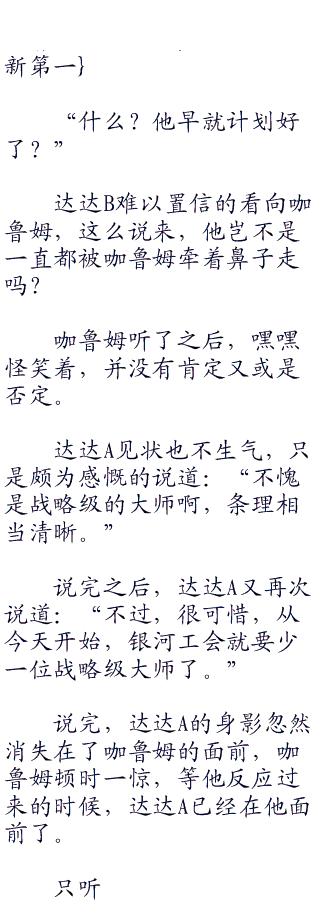 新第一}
“什么？他早就计划好
了？”
达达B难以置信的看向咖
鲁姆，这么说来，他岂不是
一直都被咖鲁姆牵着鼻子走
吗？
咖鲁姆听了之后，嘿嘿
怪笑着，并没有肯定又或是
否定。
达达A见状也不生气，只
是颇为感慨的说道：“不愧
是战略级的大师啊，条理相
当清晰。”
说完之后，达达A又再次
说道：“不过，很可惜，从
今天开始，银河工会就要少
一位战略级大师了。”
说完，达达A的身影忽然
消失在了咖鲁姆的面前，咖
鲁姆顿时一惊，等他反应过
来的时候，达达A已经在他面
前了。
只听